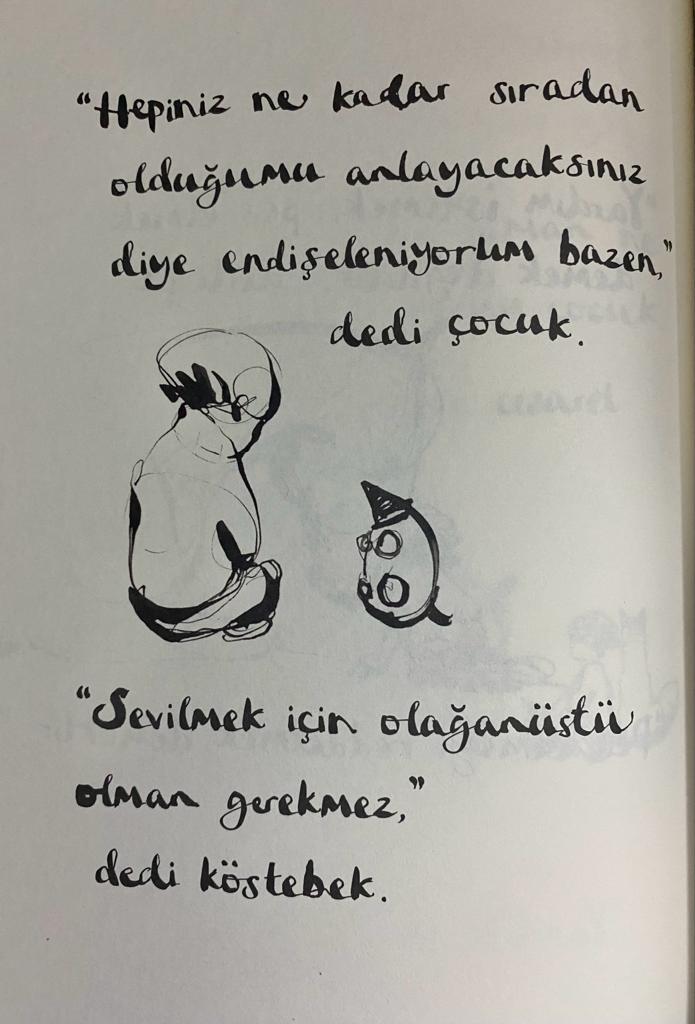 “Hepiniz ne kadar sıradan
olduğumu anlayacaksınız
diye endişeleniyorum bazen,”
dedi çocuk.
“Sevilmek için olağanüstü
olman gerekmez,”
dedi köstebek.